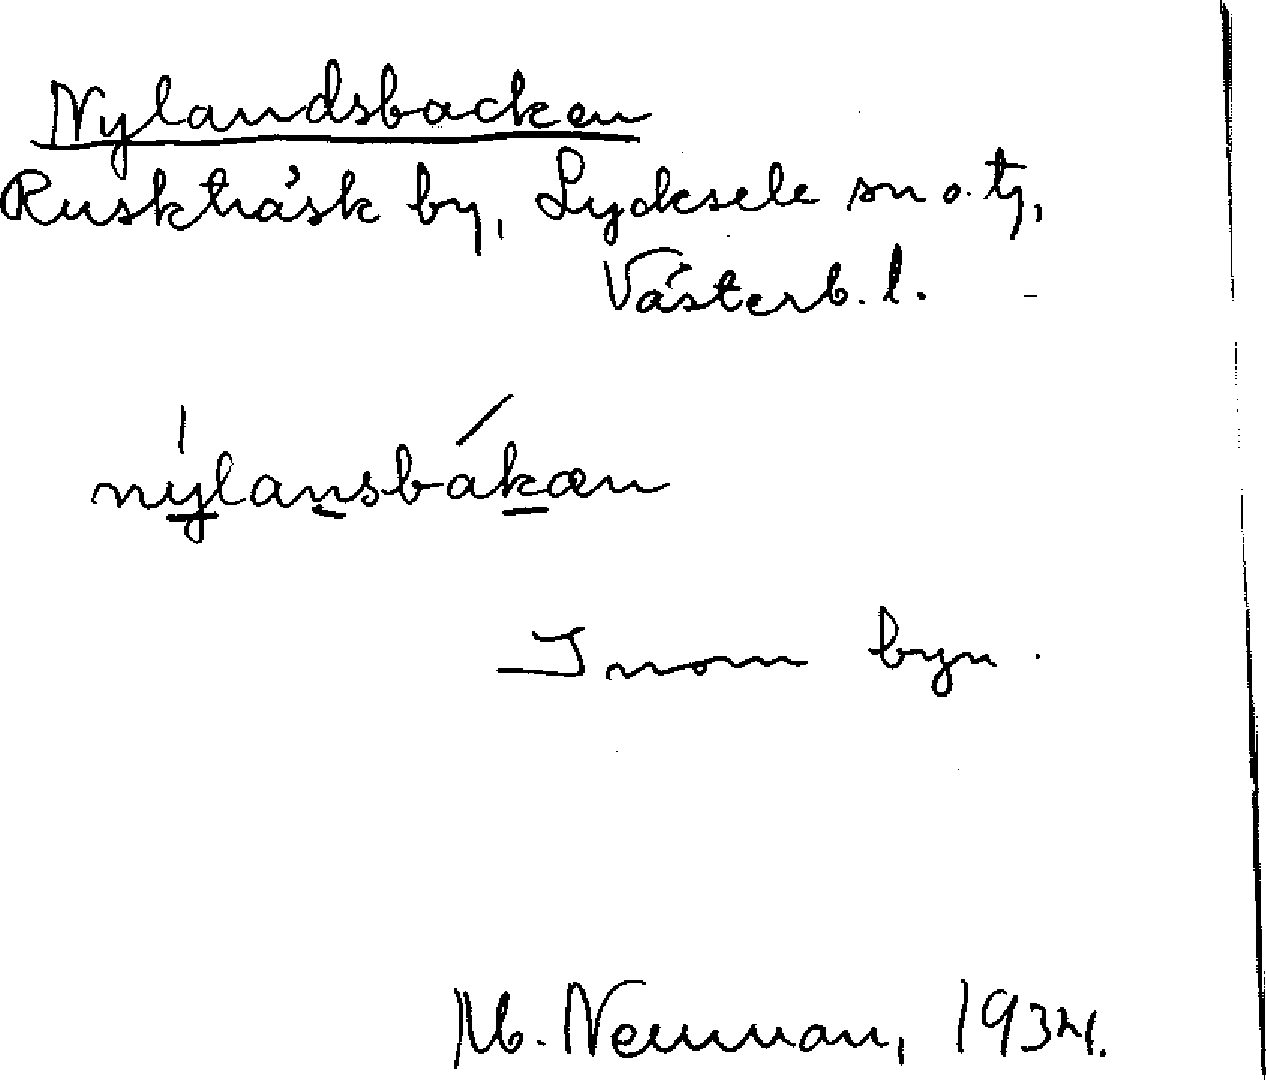 Nylandsbacken
Ruskträsk by, Lycksele sn o. tg,
Västerb. l.
nýlansbákæn
Inom byn.
M. Neuman, 1934.